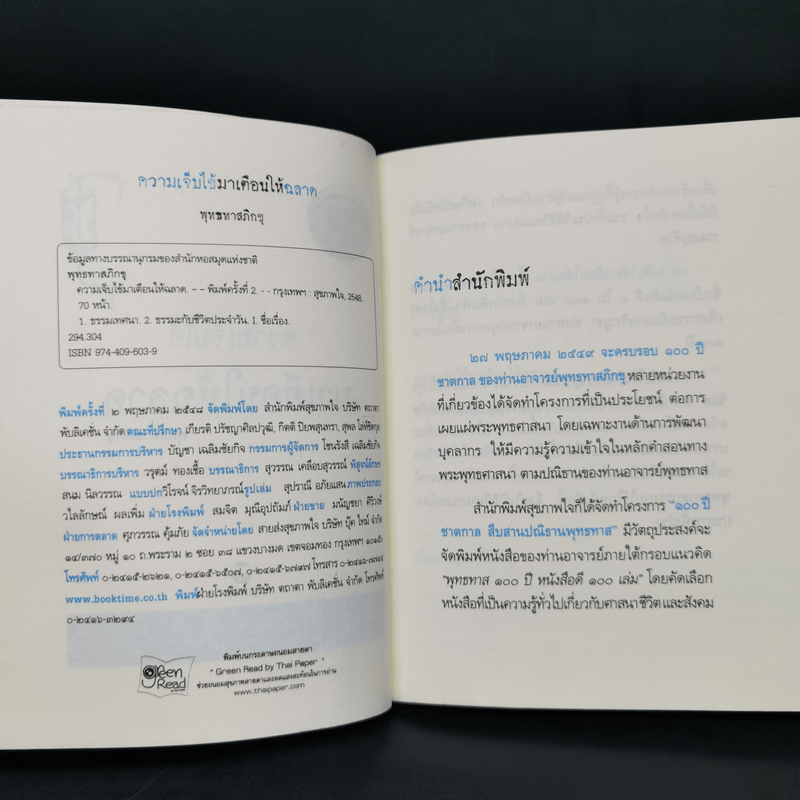 ความเจ็บไข้มาเตือนให้ฉลาด
พุทธทาสภิกขุ
ข้อมูลทางบรรณานุกรมของสำนักหอสมุดแห่งชาติ
พุทธทาสภิกขุ
ความเจ็บไข้มาเตือนให้ฉลาด. - - พิมพ์ครั้งที่ 2. - - กรุงเทพฯ : สุขภาพใจ, 2548.
70 หน้า.
1. ธรรมเทศนา. 2. ธรรมะกับชีวิตประจำวัน. I. ชื่อเรื่อง.
294.304
ISBN 974-409-603-9
พิมพ์ครั้งที่ ๒ พฤษภาคม ๒๕๔๘ จัดพิมพ์โดย สำนักพิมพ์สุขภาพใจ บริษัท ตถาตา
พับลิเคชั่น จำกัด คณะที่ปรึกษา เกียรติ ปรัชญาศิลปวุฒิ, กิตติ ปิยพสุนทรา, สุพล โล่ห์ชิตกุล
ประธานกรรมการบริหาร บัญชา เฉลิมชัยกิจ กรรมการผู้จัดการ โชนรังสี เฉลิมชัยกิจ
บรรณาธิการบริหาร วรุตม์ ทองเชื้อ บรรณาธิการ สุวรรณ เคลือบสุวรรณ์ พิสูจน์อักษร
สนม นิลวรรณ แบบปก วิโรจน์ จิรวิทยาภรณ์ รูปเล่ม สุปราณี อภัยแสน ภาพประกอบ
วไลลักษณ์ ผลเพิ่ม ฝ่ายโรงพิมพ์ สมจิต มุณีอุปถัมภ์ ฝ่ายขาย มนัญชยา ศิริวงษ์
ฝ่ายการตลาด ศุภวรรณ คุ้มภัย จัดจำหน่ายโดย สายส่งสุขภาพใจ บริษัท บุ๊ค ไทม์ จำกัด
๑๔/๓๗๐ หมู่ ๑๐ ถ.พระราม ๒ ซอย ๓๘ แขวงบางมด เขตจอมทอง กรุงเทพฯ ๑๐๑๕๐
โทรศัพท์ ๐-๒๔๑๕-๒๖๒๑, ๐-๒๔๑๕-๖๕๐๗, ๐-๒๔๑๕-๖๗๙๗ โทรสาร ๐-๒๔๑๖-๗๗๔๔
www.booktime.co.th พิมพ์ ฝ่ายโรงพิมพ์ บริษัท ตถาตา พับลิเคชั่น จำกัด โทรศัพท์
๐-๒๔๑๖-๓๒๙๔
พิมพ์บนกระดาษถนอมสายตา
" Green Read by Thai Paper "
ช่วยถนอมสุขภาพสายตาและลดแสงสะท้อนในการอ่าน
www.thaipaper.com
green
Read
คำนำสำนักพิมพ์
๒๗ พฤษภาคม ๒๕๔๙ จะครบรอบ ๑๐๐ ปี
ชาตกาล ของท่านอาจารย์พุทธทาสภิกขุ หลายหน่วยงาน
ที่เกี่ยวข้องได้จัดทำโครงการที่เป็นประโยชน์ ต่อการ
เผยแผ่พระพุทธศาสนา โดยเฉพาะงานด้านการพัฒนา
บุคลากร ให้มีความรู้ความเข้าใจในหลักคำสอนทาง
พระพุทธศาสนา ตามปณิธานของท่านอาจารย์พุทธทาส
สำนักพิมพ์สุขภาพใจก็ได้จัดทำโครงการ "๑๐๐ ปี
ชาตกาล สืบสานปณิธานพุทธทาส" มีวัตถุประสงค์จะ
จัดพิมพ์หนังสือของท่านอาจารย์ภายใต้กรอบแนวคิด
"พุทธทาส ๑๐๐ ปี หนังสือดี ๑๐๐ เล่ม" โดยคัดเลือก
หนังสือที่เป็นความรู้ทั่วไปเกี่ยวกับศาสนา ชีวิต และสังคม